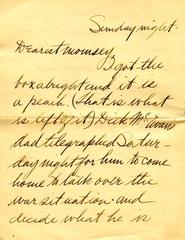 Sunday night.
Dearest Momsey
I got the
box alright and it is
a peach. (that is what
is left of it) Dick McEwans
dad telegraphed Satur-
day night for him to come
home to talk over the
war situation and
decide what he is